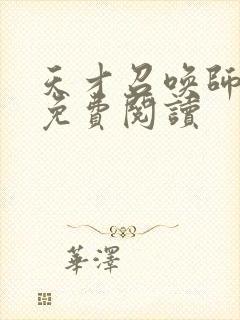 天才召喚師
免費閱讀
華澤